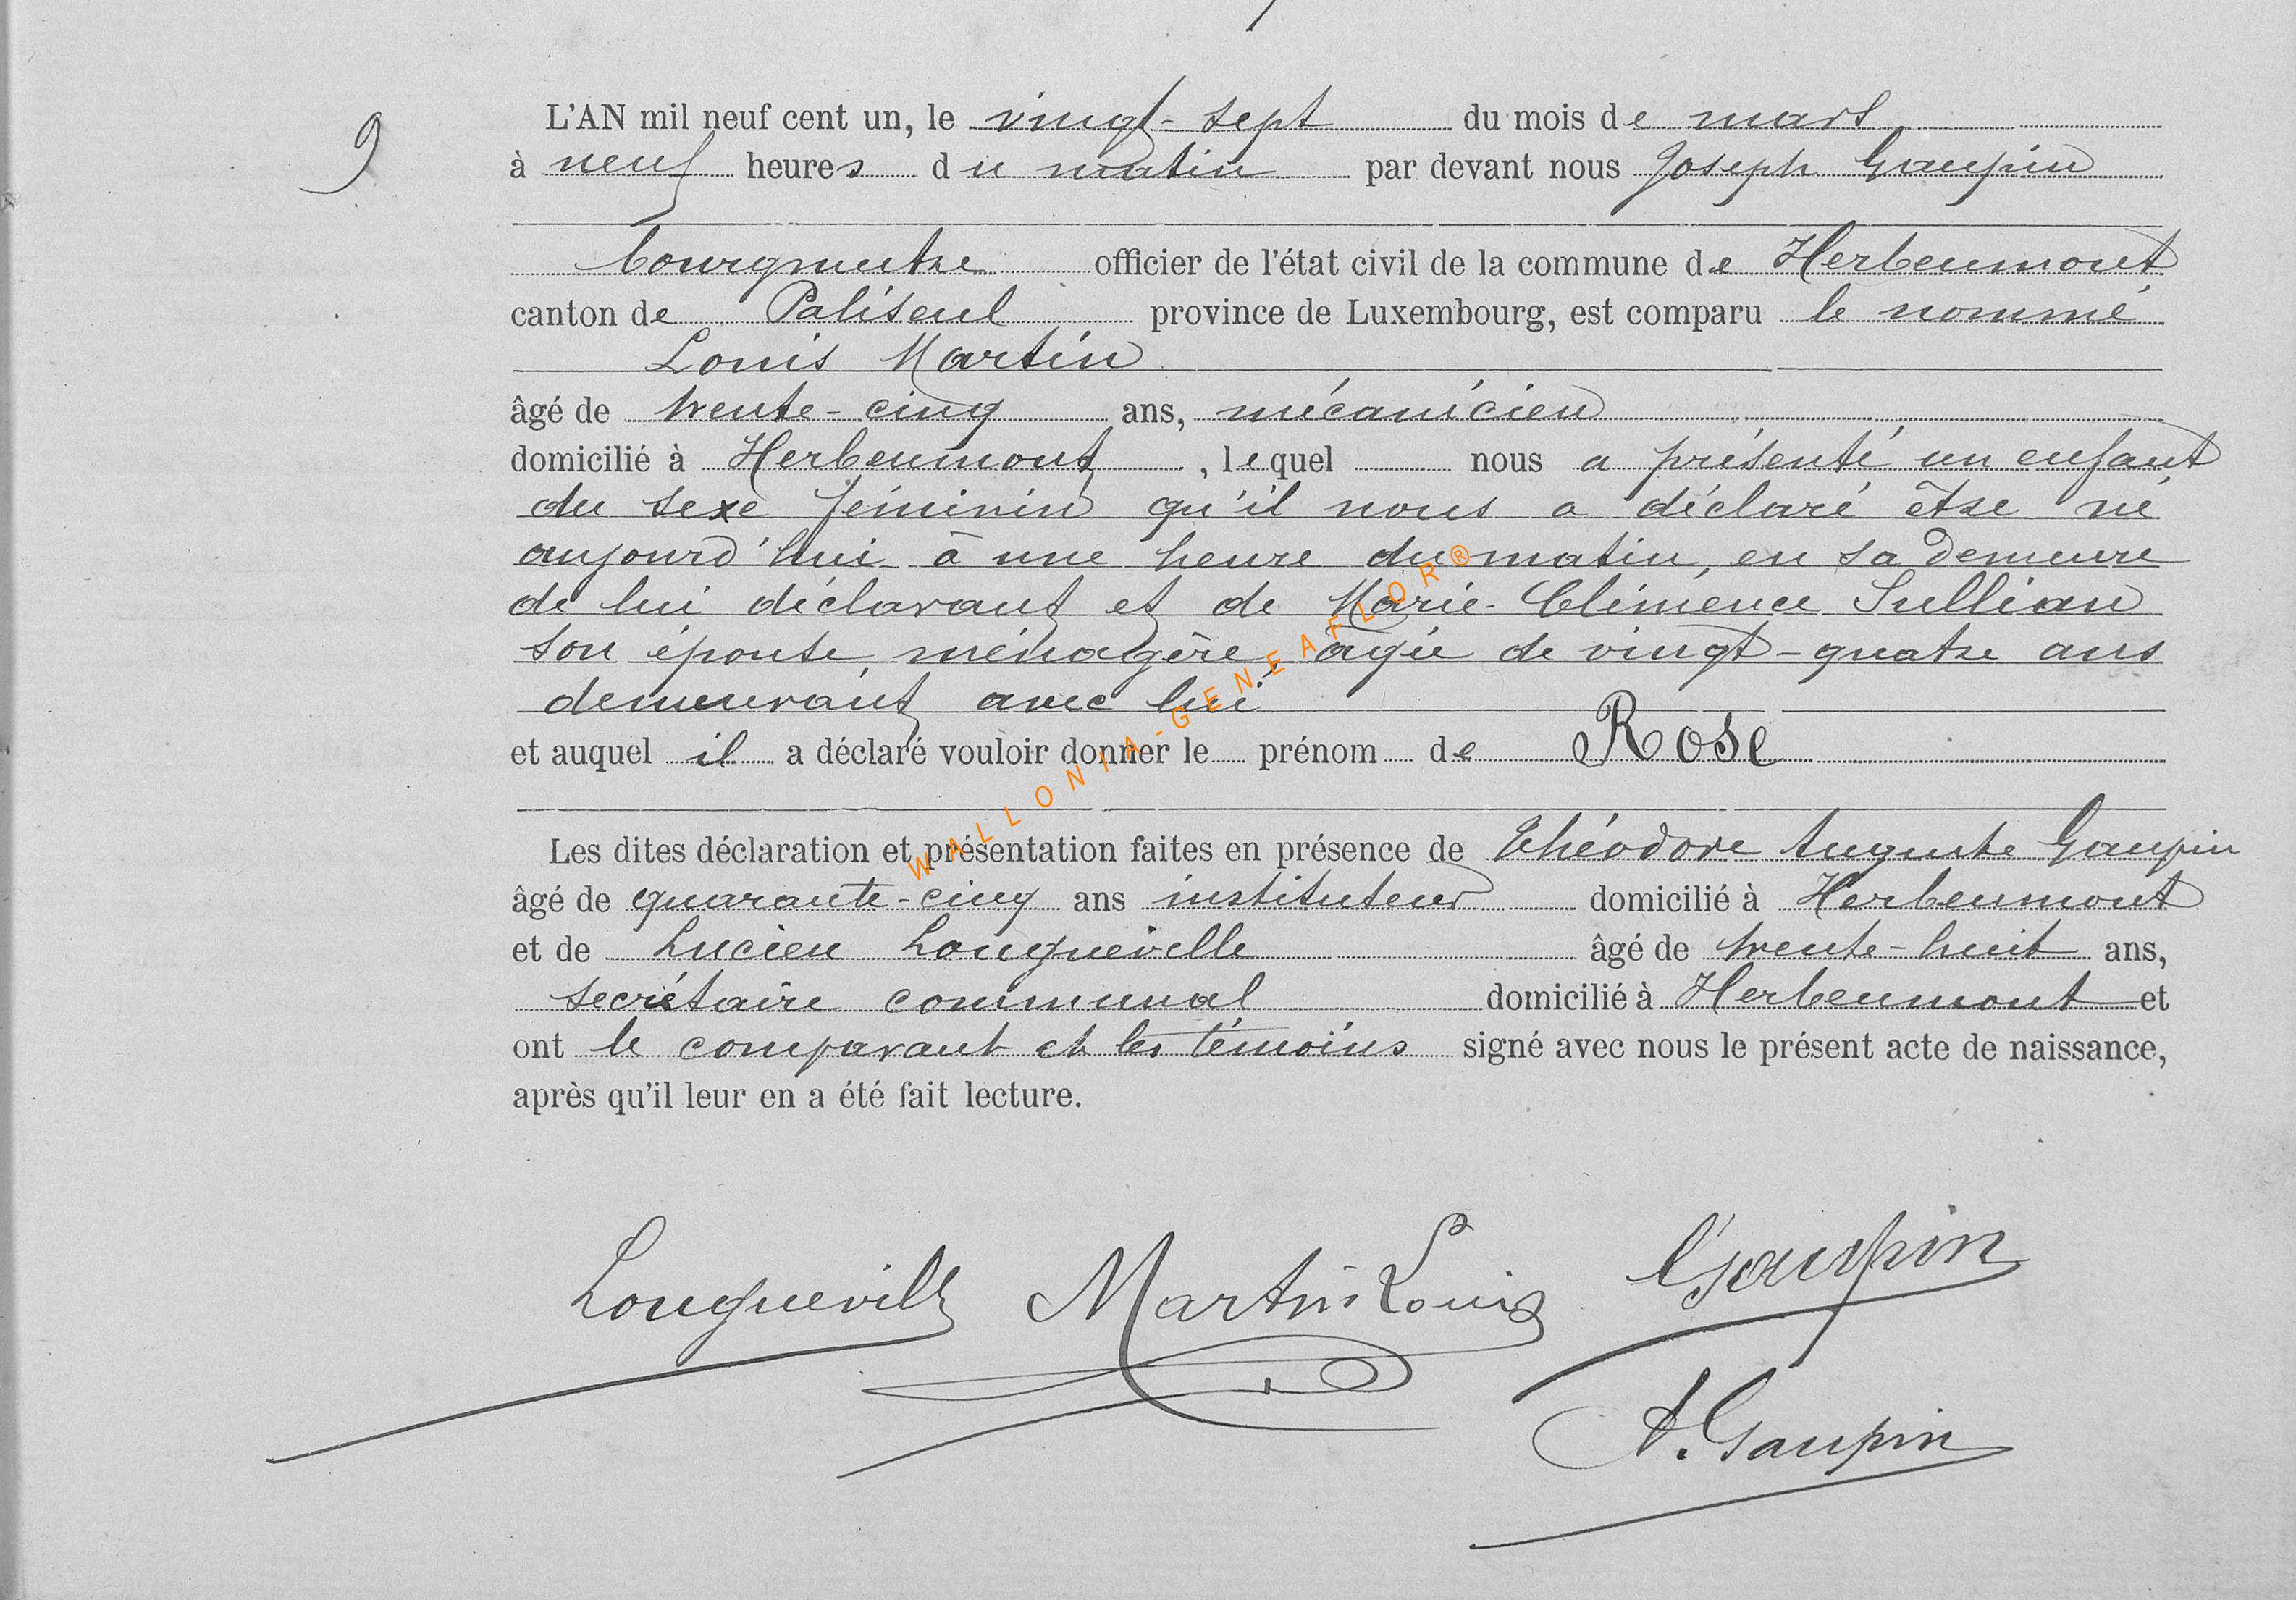 9
L'AN mil neuf cent un, le vingt-sept du mois de mars
à neuf heures du matin par devant nous Joseph Gaupin
bourgmestre officier de l'état civil de la commune de Herbeumont
canton de Paliseul province de Luxembourg, est comparu le nommé
Louis Martin
âgé de trente-cinq ans, mécanicien
domicilié à Herbeumont, lequel nous a présenté un enfant
du sexe féminin qu'il nous a déclaré être né
aujourd'hui à une heure du matin, en sa demeure
de lui déclarant et de Marie-Clémence Sullian
son épouse, ménagère, âgée de vingt-quatre ans
demeurant avec lui
et auquel il a déclaré vouloir donner le prénom de Rose
Les dites déclaration et présentation faites en présence de Théodore Auguste Gaupin
âgé de quarante-cinq ans instituteur domicilié à Herbeumont
et de Lucien Longueville âgé de trente-huit ans,
secrétaire communal domicilié à Herbeumont et
ont le comparant et les témoins signé avec nous le présent acte de naissance,
après qu'il leur en a été fait lecture.
Longueville Martin Louis Gaupin
A. Gaupin
WALLONIA-GENEAFLOR®